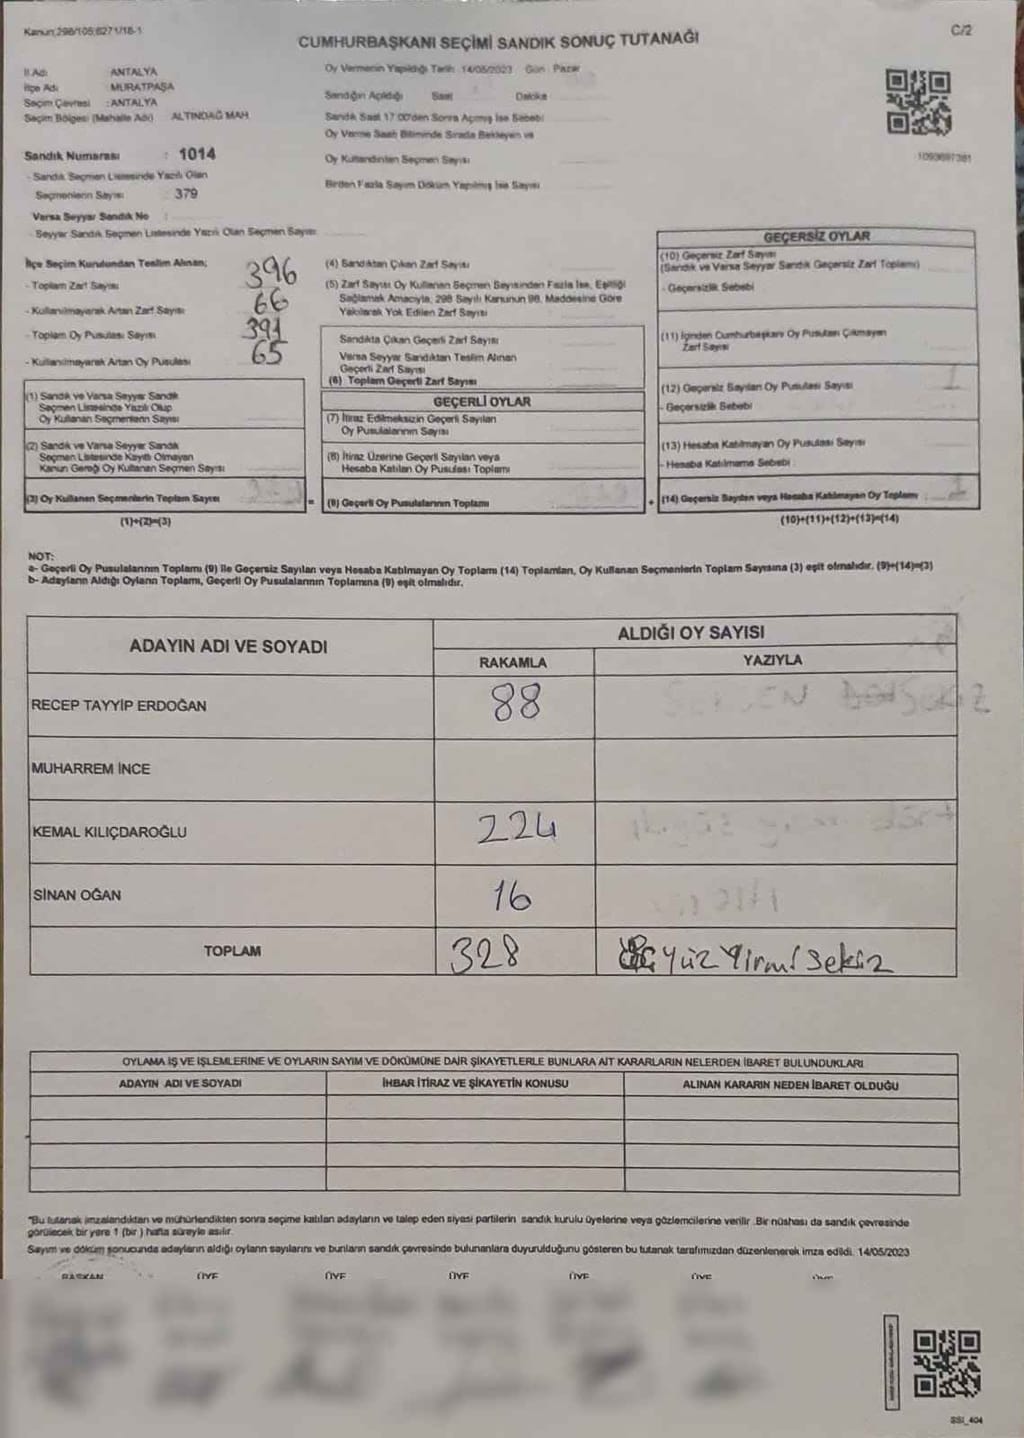 Kanun;298/105;6271/18-1
C/2
CUMHURBAŞKANI SEÇİMİ SANDIK SONUÇ TUTANAĞI
İl Adı : ANTALYA
İlçe Adı : MURATPAŞA
Seçim Çevresi : ANTALYA
Seçim Bölgesi (Mahalle Adı) ALTINDAĞ MAH.
Oy Vermenin Yapıldığı Tarih :14/05/2023 Gün : Pazar
Sandığın Açıldığı Saat Dakika
Sandık Saat 17:00'den Sonra Açımış İse Sebebi
Oy Verme Saati Bitiminde Sırada Bekleyen ve
Oy Kullandırılan Seçmen Sayısı
Birden Fazla Sayım Döküm Yapılmış İse Sayısı
1093697381
Sandık Numarası : 1014
- Sandık Seçmen Listesinde Yazılı Olan
Seçmenlerin Sayısı : 379
Varsa Seyyar Sandık No :
- Seyyar Sandık Seçmen Listesinde Yazılı Olan Seçmen Sayısı:
İlçe Seçim Kurulundan Teslim Alınan;
- Toplam Zarf Sayısı 396
- Kullanılmayarak Artan Zarf Sayısı 66
- Toplam Oy Pusulası Sayısı 391
- Kullanılmayarak Artan Oy Pusulası 65
(1) Sandık ve Varsa Seyyar Sandık
Seçmen Listesinde Yazılı Olup
Oy Kullanan Seçmenlerin Sayısı
(2) Sandık ve Varsa Seyyar Sandık
Seçmen Listesinde Kayıtlı Olmayan
Kanun Gereği Oy Kullanan Seçmen Sayısı
(3) Oy Kullanan Seçmenlerin Toplam Sayısı
(1)+(2)=(3)
(4) Sandıktan Çıkan Zarf Sayısı
(5) Zarf Sayısı Oy Kullanan Seçmen Sayısından Fazla İse, Eşitliği
Sağlamak Amacıyla, 298 Sayılı Kanunun 98. Maddesine Göre
Yakılarak Yok Edilen Zarf Sayısı
Sandıkta Çıkan Geçerli Zarf Sayısı
Varsa Seyyar Sandıktan Teslim Alınan
Geçerli Zarf Sayısı
(6) Toplam Geçerli Zarf Sayısı
GEÇERLİ OYLAR
(7) İtiraz Edilmeksizin Geçerli Sayılan
Oy Pusulalarının Sayısı
(8) İtiraz Üzerine Geçerli Sayılan veya
Hesaba Katılan Oy Pusulası Toplamı
= (9) Geçerli Oy Pusulalarının Toplamı
GEÇERSİZ OYLAR
(10) Geçersiz Zarf Sayısı
(Sandık ve Varsa Seyyar Sandık Geçersiz Zarf Toplamı)
- Geçersizlik Sebebi
(11) İçinden Cumhurbaşkanı Oy Pusulası Çıkmayan
Zarf Sayısı
(12) Geçersiz Sayılan Oy Pusulası Sayısı 1
- Geçersizlik Sebebi
(13) Hesaba Katılmayan Oy Pusulası Sayısı
- Hesaba Katılmama Sebebi
+ (14) Geçersiz Sayılan veya Hesaba Katılmayan Oy Toplamı 1
(10)+(11)+(12)+(13)=(14)
NOT:
a- Geçerli Oy Pusulalarının Toplamı (9) ile Geçersiz Sayılan veya Hesaba Katılmayan Oy Toplamı (14) Toplamları, Oy Kullanan Seçmenlerin Toplam Sayısına (3) eşit olmalıdır. (9)+(14)=(3)
b- Adayların Aldığı Oyların Toplamı, Geçerli Oy Pusulalarının Toplamına (9) eşit olmalıdır.
ADAYIN ADI VE SOYADI
ALDIĞI OY SAYISI
RAKAMLA YAZIYLA
RECEP TAYYİP ERDOĞAN 88
MUHARREM İNCE
KEMAL KILIÇDAROĞLU 224
SİNAN OĞAN 16
TOPLAM 328 Üç yüz Yirmi Sekiz
OYLAMA İŞ VE İŞLEMLERİNE VE OYLARIN SAYIM VE DÖKÜMÜNE DAİR ŞİKAYETLERLE BUNLARA AİT KARARLARIN NELERDEN İBARET BULUNDUKLARI
ADAYIN ADI VE SOYADI İHBAR İTİRAZ VE ŞİKAYETİN KONUSU ALINAN KARARIN NEDEN İBARET OLDUĞU
"Bu tutanak imzalandıktan ve mühürlendikten sonra seçime katılan adayların ve talep eden siyasi partilerin sandık kurulu üyelerine veya gözlemcilerine verilir .Bir nüshası da sandık çevresinde
görülecek bir yere 1 (bir ) hafta süreyle asılır.
Sayım ve döküm sonucunda adayların aldığı oyların sayılarını ve bunların sandık çevresinde bulunanlara duyurulduğunu gösteren bu tutanak tarafımızdan düzenlenerek imza edildi. 14/05/2023
BAŞKAN ÜYE ÜYE ÜYE ÜYE ÜYE
SSI_404